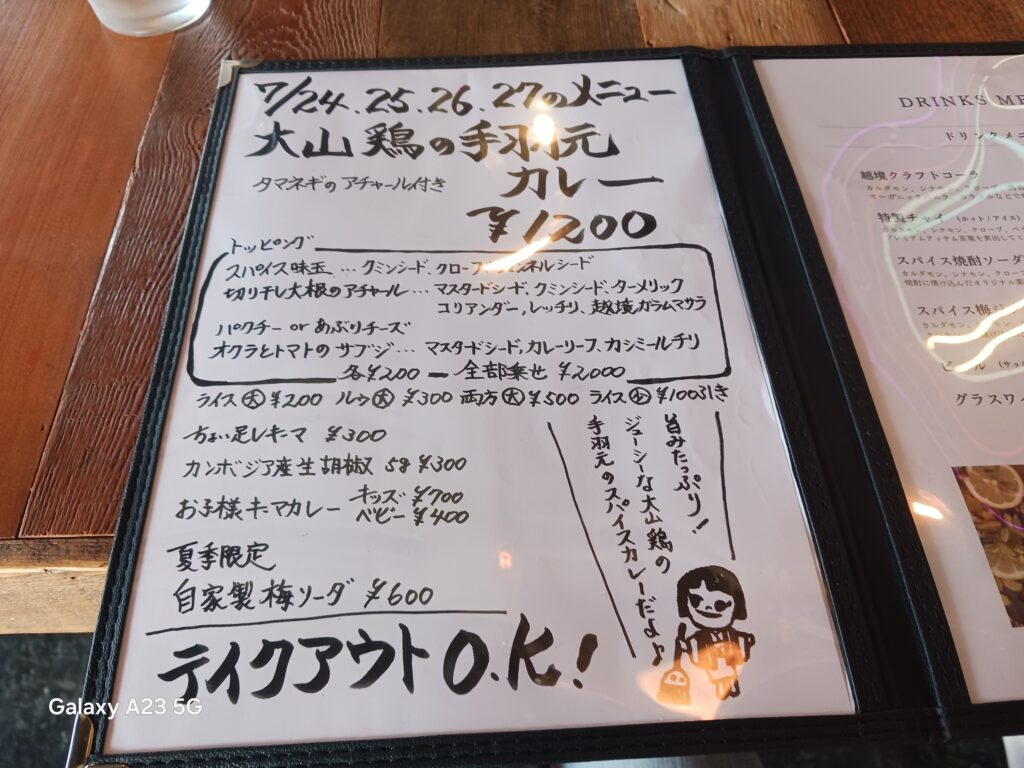 7/24.25.26.27のメニュー
大山鶏の手羽元
カレー
タマネギのアチャール付き
¥1200
トッピング
スパイス味玉…クミンシード、クローブ、フェンネルシード
切り干し大根のアチャール…マスタードシード、クミンシード、ターメリック
コリアンダー、レッチリ、越境ガラムマサラ
パクチー or あぶりチーズ
オクラとトマトのサブジ…マスタードシード、カレーリーフ、カシミールチリ
各¥200 ー 全部乗せ ¥2,000
ライス大¥200 ルゥ大¥300 両方大¥500 ライス小¥100引き
ちょい足しキーマ ¥300
カンボジア産生胡椒 5g ¥300
お子様キーマカレー キッズ ¥700
ベビー ¥400
夏季限定
自家製梅ソーダ ¥600
旨みたっぷり!
ジューシーな大山鶏の
手羽元のスパイスカレーだよ♪
テイクアウトO.K!
DRINKS ME
ドリンクメニ
越境クラフトコーラ
特製チャイ (ホット/アイス)
スパイス焼酎ソーダ
焼酎に漬け込んだオリジナル
スパイス梅ジン
ビール (サッ
グラスワイ
Galaxy A23 5G